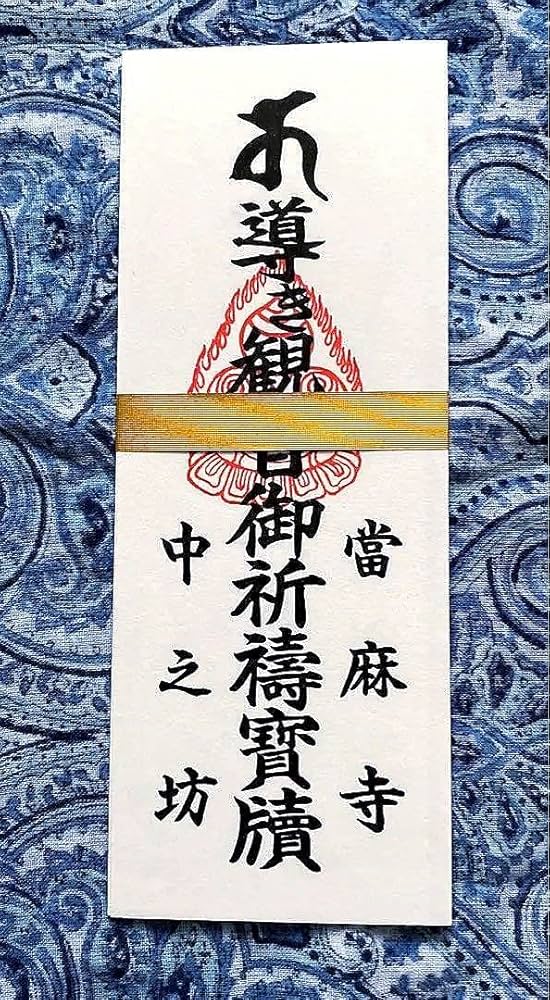 當麻寺
𑖭導き観音御祈禱寶牘
中之坊